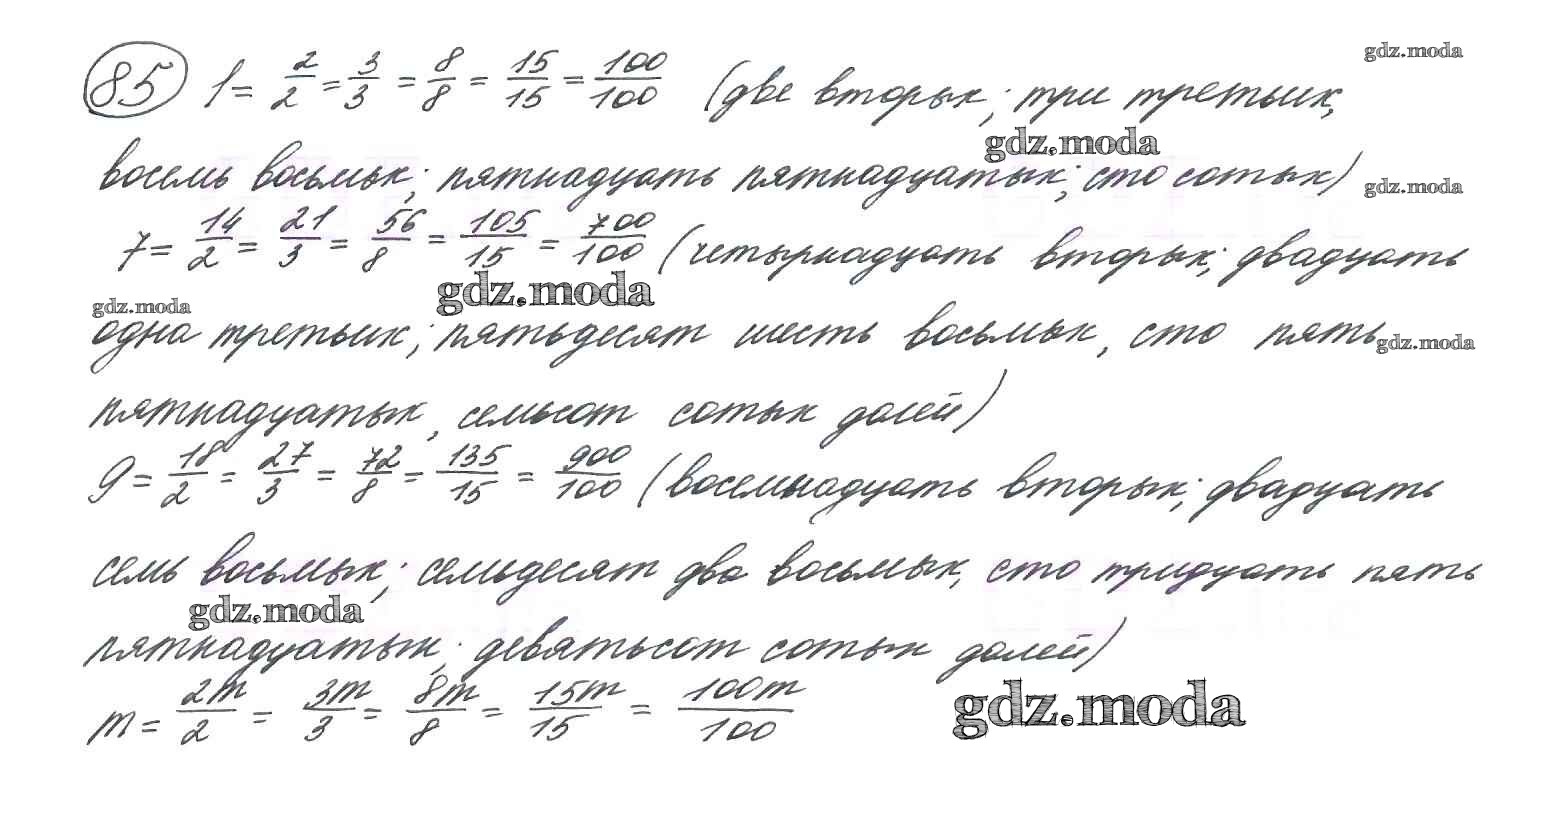 85 1 = 2/2 = 3/3 = 8/8 = 15/15 = 100/100 (две вторых; три третьих,
gdz.moda
gdz.moda
восемь восьмых; пятнадцать пятнадцатых; сто сотых)
gdz.moda
7 = 14/2 = 21/3 = 56/8 = 105/15 = 700/100 (четырнадцать вторых; двадцать
gdz.moda
gdz.moda
одна третьих; пятьдесят шесть восьмых, сто пять
gdz.moda
пятнадцатых, семьсот сотых долей)
9 = 18/2 = 27/3 = 72/8 = 135/15 = 900/100 (восемнадцать вторых; двадцать
семь восьмых; семьдесят два восьмых, сто тридцать пять
gdz.moda
пятнадцатых; девятьсот сотых долей)
m = 2m/2 = 3m/3 = 8m/8 = 15m/15 = 100m/100
gdz.moda